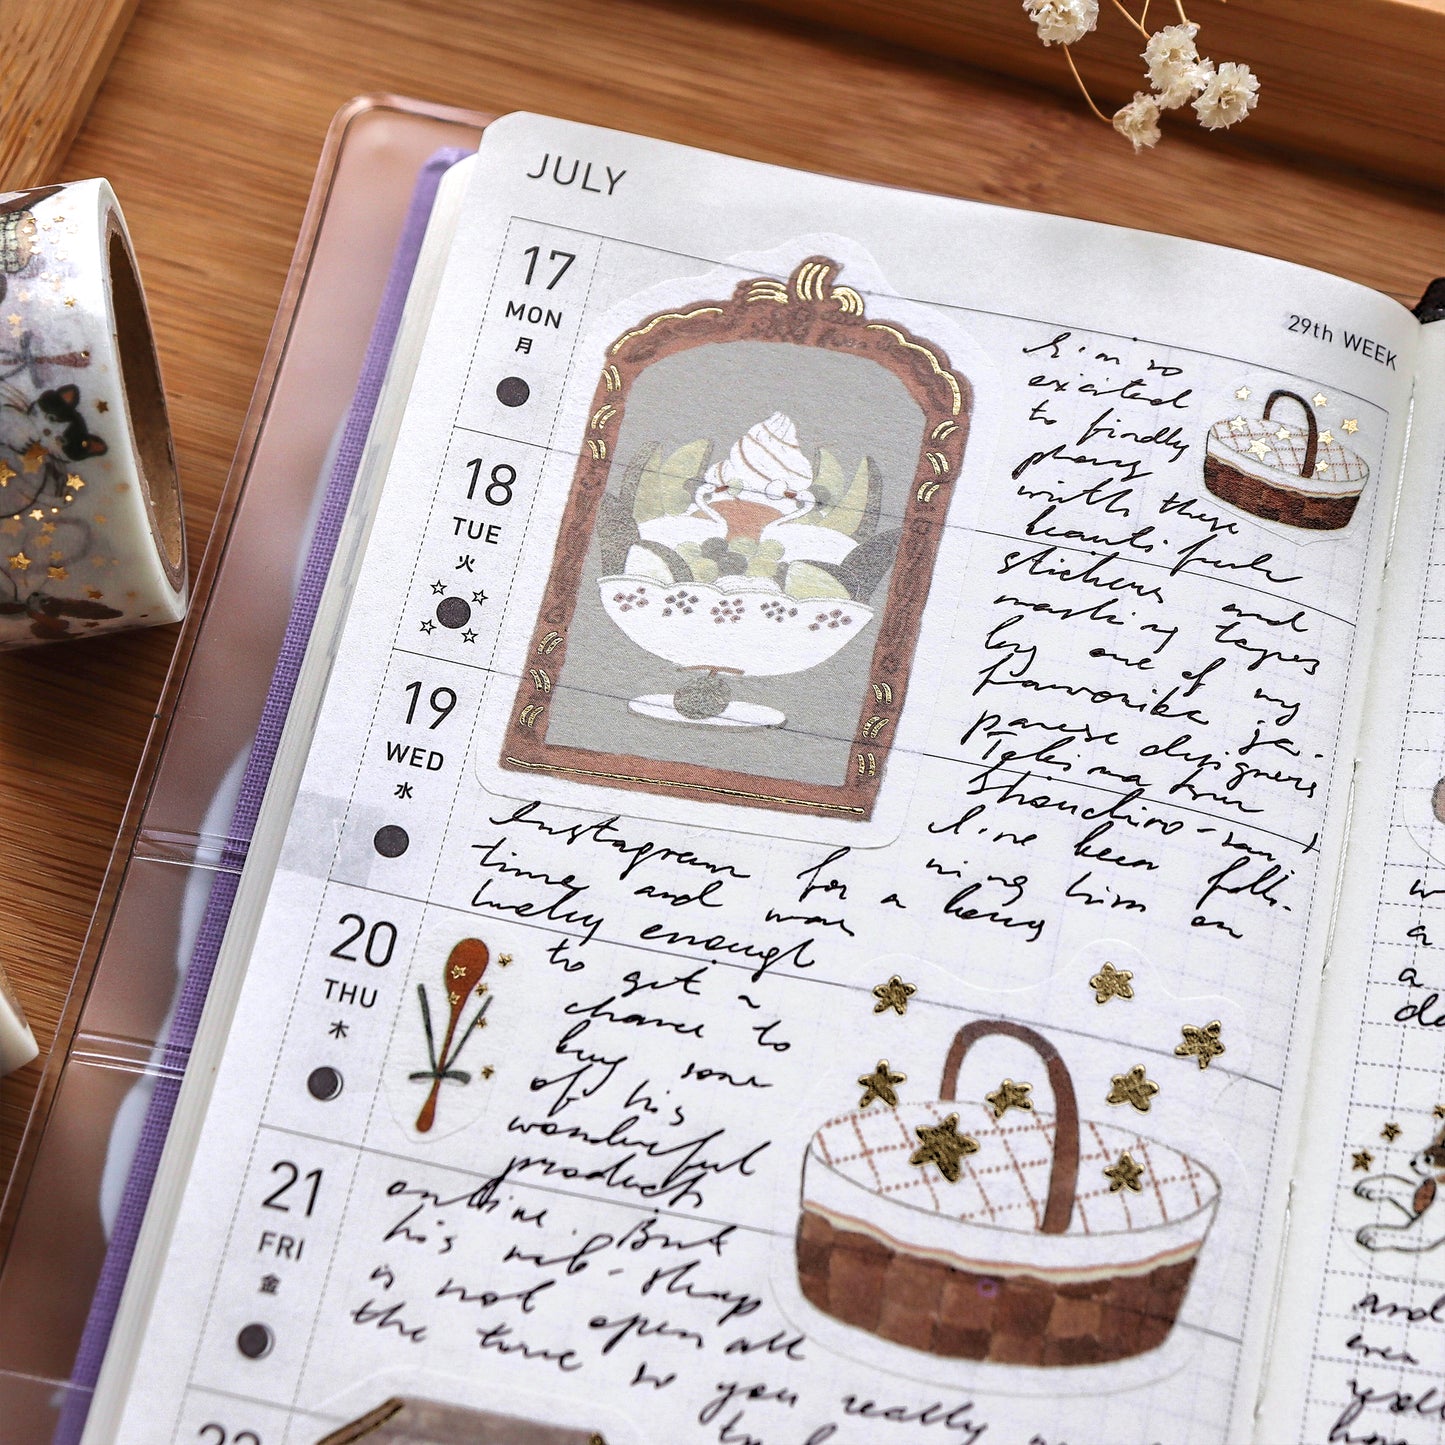 JULY
29th WEEK
17
MON
月
18
TUE
火
19
WED
水
20
THU
木
21
FRI
金
22
I'm so
excited
to finally
with these
beautiful
stickers and
masking tapes
by one of my
favorite Ja-
panese designers
Shouchiro-san!
I've been follo-
wing him on
Instagram for a long
time and was
lucky enough
to get a
chance to
buy some
of his
wonderful
products
online. But
his web-shop
is not open all
the time so you really
w
a
a
and
even